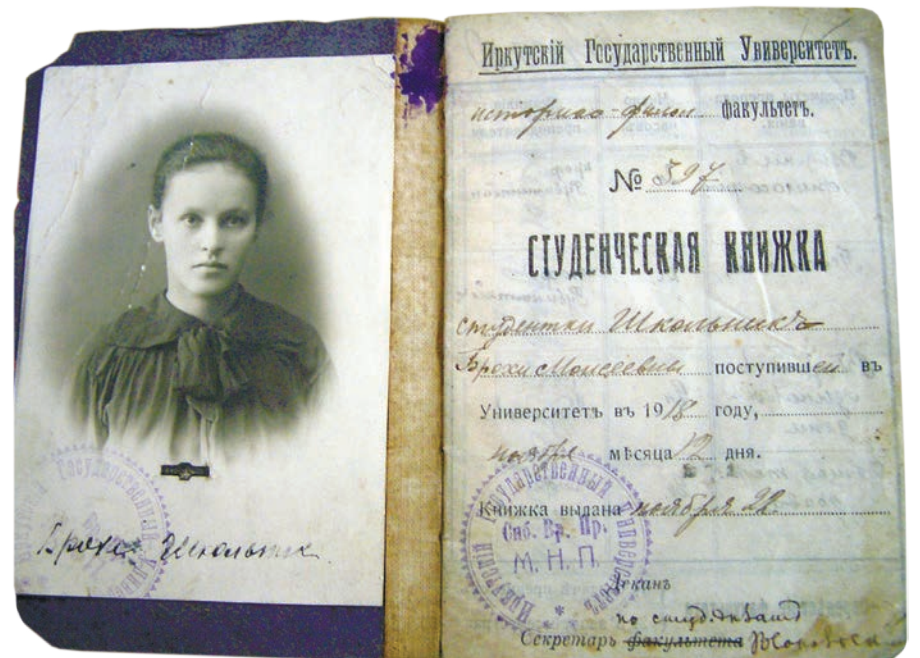 Броха Школьник
Иркутскій Государственный Университетъ.
историко-филол факультетъ.
№ 397
СТУДЕНЧЕСКАЯ КНИЖКА
студентки Школьникъ
Брохи Моисеевны поступившей въ
Университетъ въ 1918 году,
ноября мѣсяца 12 дня.
Книжка выдана ноября 22
Иркутскій Государственный Университетъ
Сиб. Вр. Пр.
М. Н. П.
Деканъ
по студ. дѣламъ
Секретарь факультета